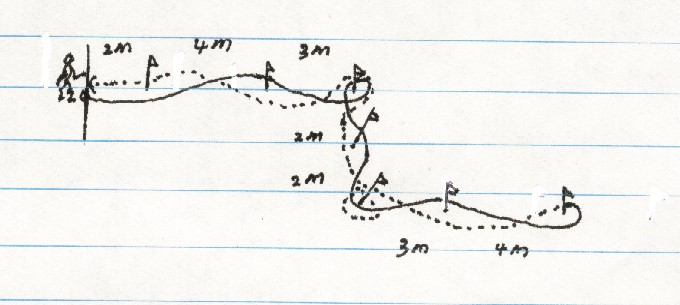 2m 4m 3m
2m
2m
3m 4m